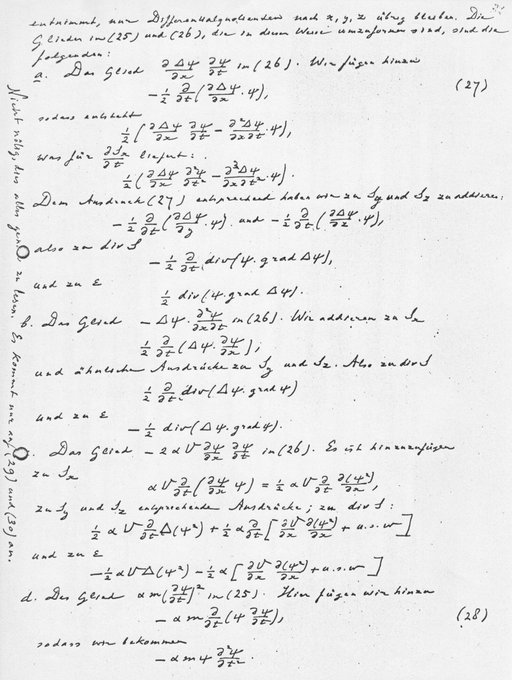 entnimmt, nur Differentialquotienten nach x, y, z übrig bleiben. Die
Glieder in (25) und (26), die in dieser Weise umzuformen sind, sind die
folgenden:
a. Das Glied ∂Δψ/∂x ∂ψ/∂t in (26). Wir fügen hinzu
− 1/2 ∂/∂t (∂Δψ/∂x · ψ), (27)
sodass entsteht
1/2 (∂Δψ/∂x ∂ψ/∂t − ∂²Δψ/∂x∂t · ψ),
was für ∂Sx/∂t liefert:
1/2 (∂Δψ/∂x ∂²ψ/∂t² − ∂³Δψ/∂x∂t² · ψ).
Dem Ausdruck (27) entsprechend haben wir zu Sy und Sz zu addieren:
− 1/2 ∂/∂t (∂Δψ/∂y · ψ) und − 1/2 ∂/∂t (∂Δψ/∂z · ψ),
also zu div S
− 1/2 ∂/∂t div (ψ · grad Δψ),
und zu ε
1/2 div (ψ · grad Δψ).
b. Das Glied − Δψ · ∂²ψ/∂x∂t in (26). Wir addieren zu Sx
1/2 ∂/∂t (Δψ · ∂ψ/∂x);
und ähnliche Ausdrücke zu Sy und Sz. Also zu div S
1/2 ∂/∂t div (Δψ · grad ψ)
und zu ε
− 1/2 div (Δψ · grad ψ).
Das Glied − 2αV ∂ψ/∂x ∂ψ/∂t in (26). Es ist hinzuzufügen
zu Sx
αV ∂/∂t (∂ψ/∂x ψ) = 1/2 αV ∂/∂t ∂(ψ²)/∂x,
zu Sy und Sz entsprechende Ausdrücke; zu div S:
1/2 αV ∂/∂t Δ(ψ²) + 1/2 α ∂/∂t [∂V/∂x ∂(ψ²)/∂x + u.s.w]
und zu ε
− 1/2 αVΔ(ψ²) − 1/2 α [∂V/∂x ∂(ψ²)/∂x + u.s.w]
d. Das Glied αm(∂ψ/∂t)² in (25). Hier fügen wir hinzu
− αm ∂/∂t (ψ ∂ψ/∂t), (28)
sodass wir bekommen
− αmψ ∂²ψ/∂t².
Nicht nötig, dies alles genau zu lesen. Es kommt nur auf (29) und (30) an.